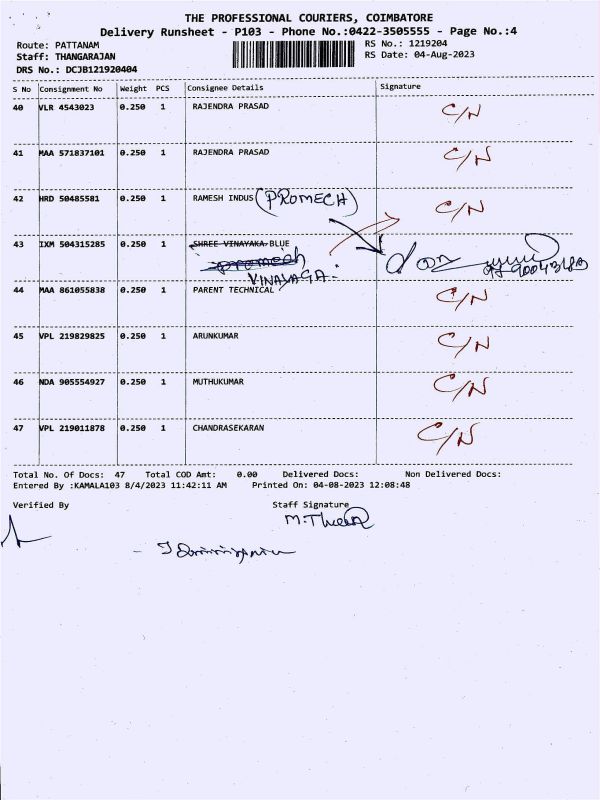 THE PROFESSIONAL COURIERS, COIMBATORE
Delivery Runsheet - P103 - Phone No.:0422-3505555 - Page No.:4
Route: PATTANAM RS No.: 1219204
Staff: THANGARAJAN RS Date: 04-Aug-2023
DRS No.: DCJB121920404
S No Consignment No Weight PCS Consignee Details Signature
40 VLR 4543023 0.250 1 RAJENDRA PRASAD C/N
41 MAA 571837101 0.250 1 RAJENDRA PRASAD C/N
42 HRD 50485581 0.250 1 RAMESH INDUS (PROMECH) C/N
43 IXM 504315285 0.250 1 SHREE VINAYAKA BLUE
promech
VINAYAGA
44 MAA 861055838 0.250 1 PARENT TECHNICAL C/N
45 VPL 219829825 0.250 1 ARUNKUMAR C/N
46 NDA 905554927 0.250 1 MUTHUKUMAR C/N
47 VPL 219011878 0.250 1 CHANDRASEKARAN C/N
Total No. Of Docs: 47 Total COD Amt: 0.00 Delivered Docs: Non Delivered Docs:
Entered By :KAMALA103 8/4/2023 11:42:11 AM Printed On: 04-08-2023 12:08:48
Verified By Staff Signature